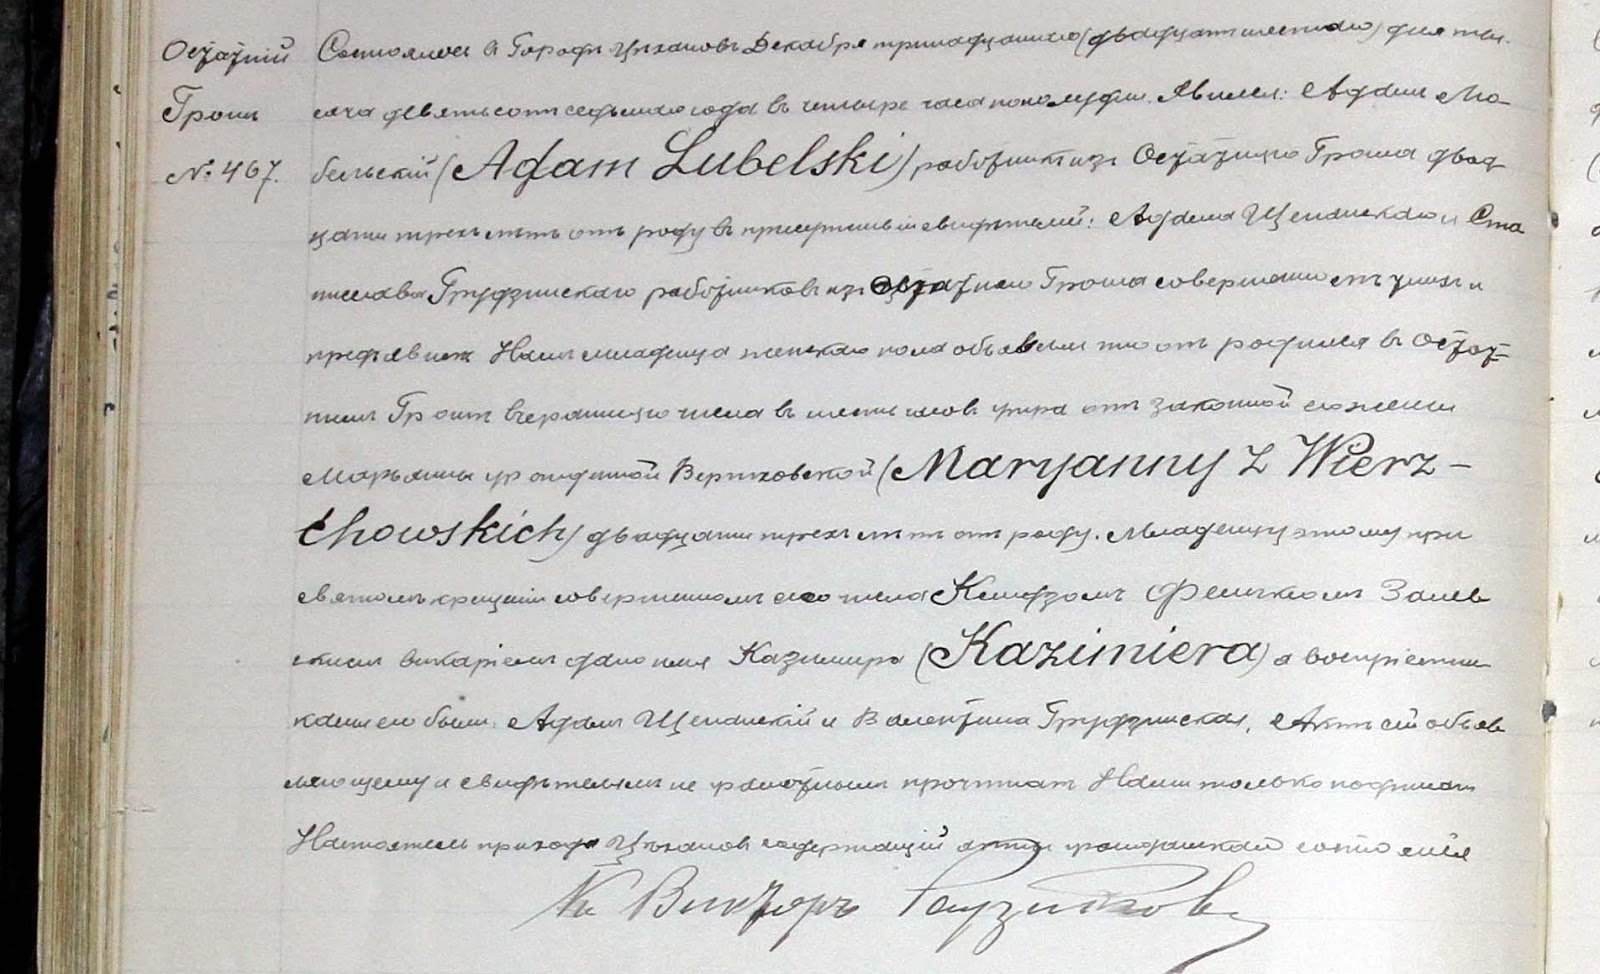 Остатній
Грошъ
№ 467.
Состоялось въ Городѣ Цѣхановѣ Декабря тринадцатаго (двадцать шестаго) дня ты-
сяча девятьсотъ седьмаго года въ четыре часа пополудни. Явился: Адамъ Лю-
бельскій (Adam Lubelski) работникъ изъ Остатняго Гроша двад-
цати трехъ лѣтъ отъ роду въ присутствіи свидѣтелей: Адама Щепанскаго и Ста
нислава Грудзинскаго работниковъ изъ Остатняго Гроша совершеннолѣтнихъ и
предъявилъ Намъ младенца женскаго пола объявляя что онъ родился въ Остат-
немъ Грошѣ вчерашняго числа въ часовъ утра отъ законной его жены
Марьянны урожденной Вержховской (Maryanny z Wierz-
chowskich) двадцати трехъ лѣтъ отъ роду. Младенцу этому при
святомъ крещеніи совершенномъ сего числа Ксендзомъ Феликсомъ
викаріемъ дано имя Казимира (Kazimiera) а воспріемни
ками его были: Адамъ Щепанскій и Валентина Грудзинская. Актъ сей объяв
ляющему и свидѣтелямъ неграмотнымъ прочитанъ Нами только подписанъ
Настоятель прихода Цѣхановъ содержащій акты гражданскаго состоянія
Кс Викторъ